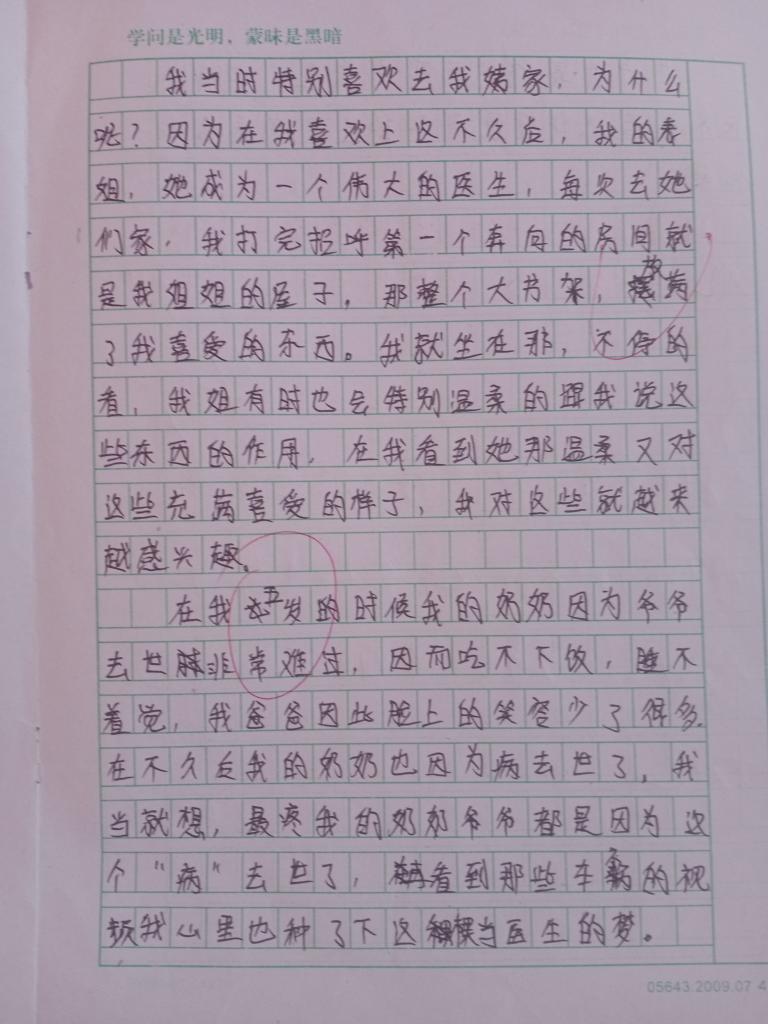 学问是光明，蒙昧是黑暗
我当时特别喜欢去我姨家，为什么
呢？因为在我喜欢上这不久后，我的表
姐，她成为一个伟大的医生，每次去她
们家，我打完招呼第一个奔向的房间就
是我姐姐的屋子，那整个大书架，放满
了我喜爱的东西。我就坐在那，不停的
看，我姐有时也会特别温柔的跟我说这
些东西的作用，在我看到她那温柔又对
这些充满喜爱的样子，我对这些就越来
越感兴趣。
在我五岁的时候我的奶奶因为爷爷
去世非常难过，因而吃不下饭，睡不
着觉，我爸爸因此脸上的笑容少了很多。
在不久后我的奶奶也因为病去世了，我
当就想，最疼我的奶奶爷爷都是因为这
个“病”去世了，看到那些车的视
频我心里也种了下这棵当医生的梦。
05643.2009.07 4